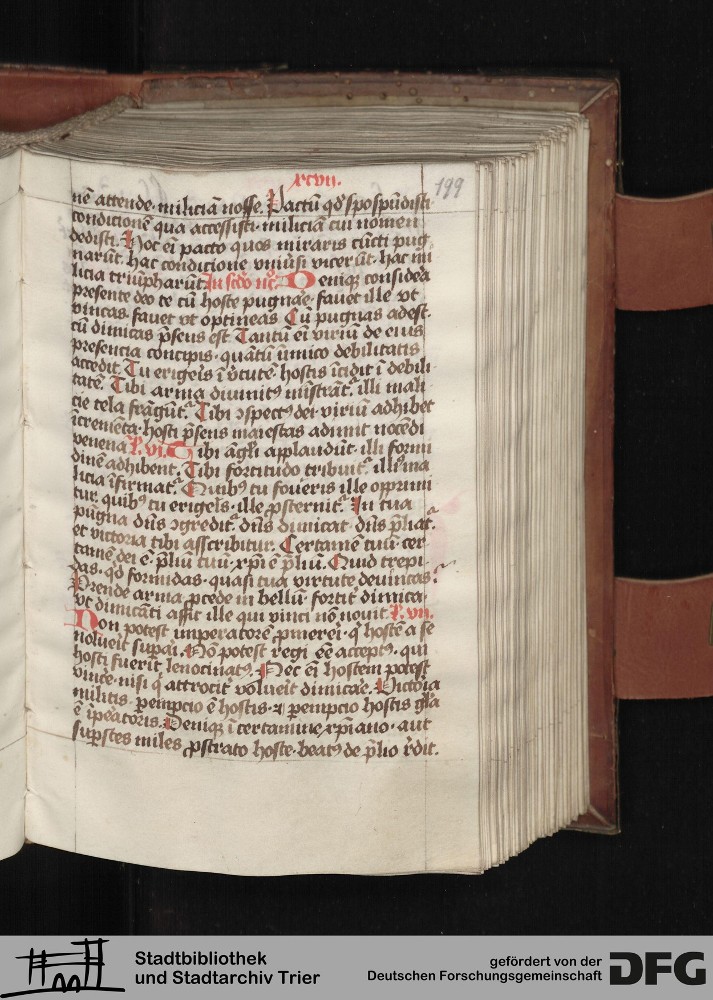 xcvii.
199
nē attende· miliciā nosse. Pactū qd' spospūdisti
condicionē qua accessisti· miliciam cui nomen
dedisti. Hoc eī pacto quos miraris cūcti pug
narūt. hac condicione vniūsi vicerūt· hac mi
licia triūpharūt. In scd'o nc̄. Denique considea
presente deo te cū hoste pugnāe· fauet ille vt
vincas· fauet vt optineas Cū pugnas adest.
cū dimicas p̄sens est. Tantū eī viriū de eius
presencia concipis· quātū inmico debilitatis
accedit. Tu erigeis ī v̄tutē· hostis īcidit ī debili
tatē. Tibi arma diuinitꝰ mīstrāt᷑. illi mali
cie tela frāgūt᷑. Tibi ↄspectꝰ dei· viriū adhibet
īcremēta· hosti p̄sens maiestas adimit nocēdi
venena ℟. vi. Tibi āgłi applaudūt· illi formi
dinē adhibent. Tibi fortitudo tribuit᷑. illiꝰ ma
licia īfirmat᷑. Quibꝰ tu foueris ille opprimi
tur. quibꝰ tu erigeis· ille ꝓsternit᷑. In tua
pugna dn̄s ↄgredit᷑. dn̄s dimicat· dn̄s p̄liat᷑.
et victoria tibi asscribitur. Certamē tuū· cer
tamē dei ē· p̄liū tuū· xp̄i ē p̄liū. Quid trepi-
das· qd' formidas· quasi tua virtute deuincas?
Prende arma· ꝓcede in bellū· fortit̄ dimica·
vt dimicāti assit ille qui vinci nō nouit ℟. vii.
Non potest imperatorē ꝓmerei· q̇ hostē a se
nolueit supāi. Nō potest regi eē acceptꝰ· qui
hosti fuerit lenocinatꝰ. Nec eī hostem potest
vincē· nisi q̇ attrocit̄ volueit dimicāe. Victoria
militis· pempcio ē hostis· ⁊ pempcio hostis głia
ē īpeatoris. Denique ī certamine xp̄iano· aut
supstes miles ꝓstrato hoste· beatꝰ de p̄lio r̄dit.
Stadtbibliothek
und Stadtarchiv Trier
gefördert von der
Deutschen Forschungsgemeinschaft
DFG